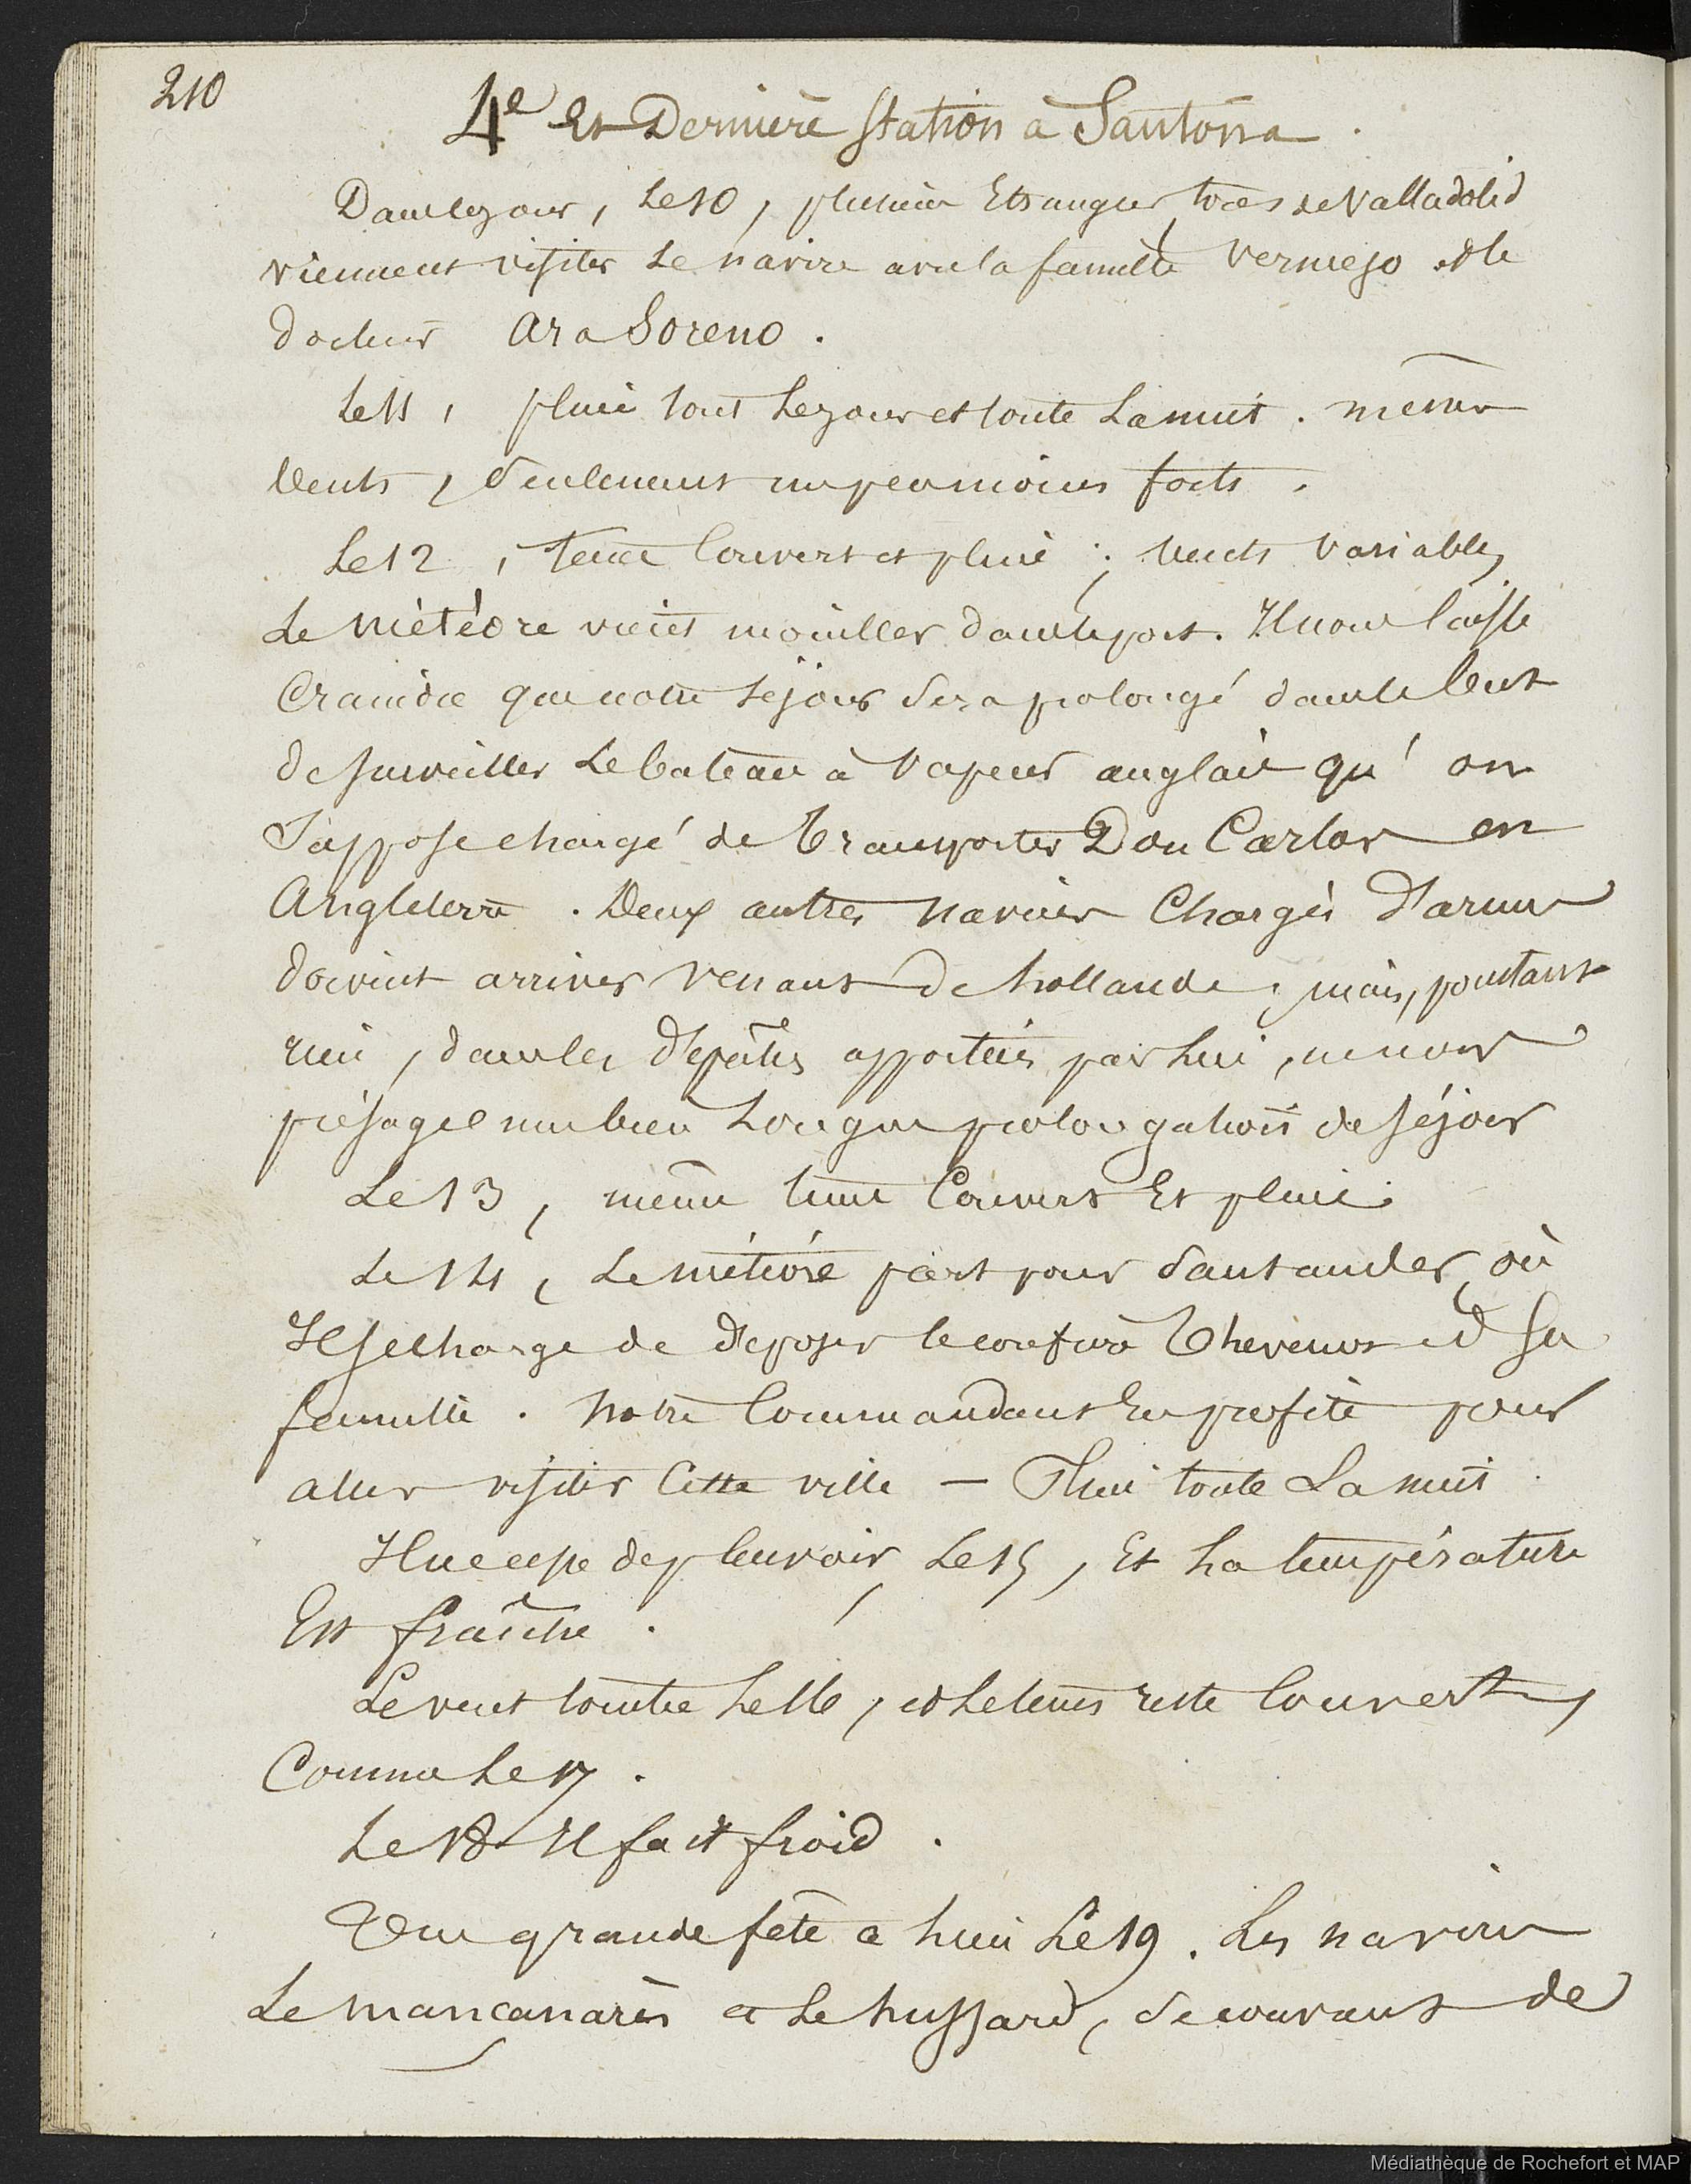 210
4e Et Dernière station à Santôna.
Dans le jour, Le 10, plusieurs Etrangers, venus de Valladolid
viennent visiter Le navire avec la famille Vermejo et le
docteur Ara Soreno.
Le 11, pluie tout Le jour et toute La nuit. mêmes
Vents, Seulement un peu moins forts.
Le 12, tems Couvert et pluie ; vents variables,
Le Météore vient mouiller dans le port. Il nous laisse
Craindre que notre séjour Sera prolongé dans le but
de surveiller Le bateau à Vapeur anglais qu'on
Suppose chargé de Transporter Don Carlos en
Angleterre. Deux autres navires Chargés D'armes
doivent arriver venant de hollande, mais, pourtant
rien, dans les dépêches apportées par Lui, ne nous
présage une bien Longue prolongation de séjour
Le 13, même tems Couvert Et pluie.
Le 14, Le météore part pour Santander, où
Il se charge de déposer le consul Thevenot et sa
famille. Notre Commandant En profite pour
aller visiter Cette ville — Pluie toute La nuit.
Il ne cesse de pleuvoir, Le 15, Et La température
Est fraîche.
Le vent tombe Le 16, et Le tems reste Couvert,
Comme Le 17.
Le 18 Il fait froid.
Une grande fête a lieu Le 19. Les navires
Le mançanarès et Le hussard, se couvrant de
Médiathèque de Rochefort et MAP